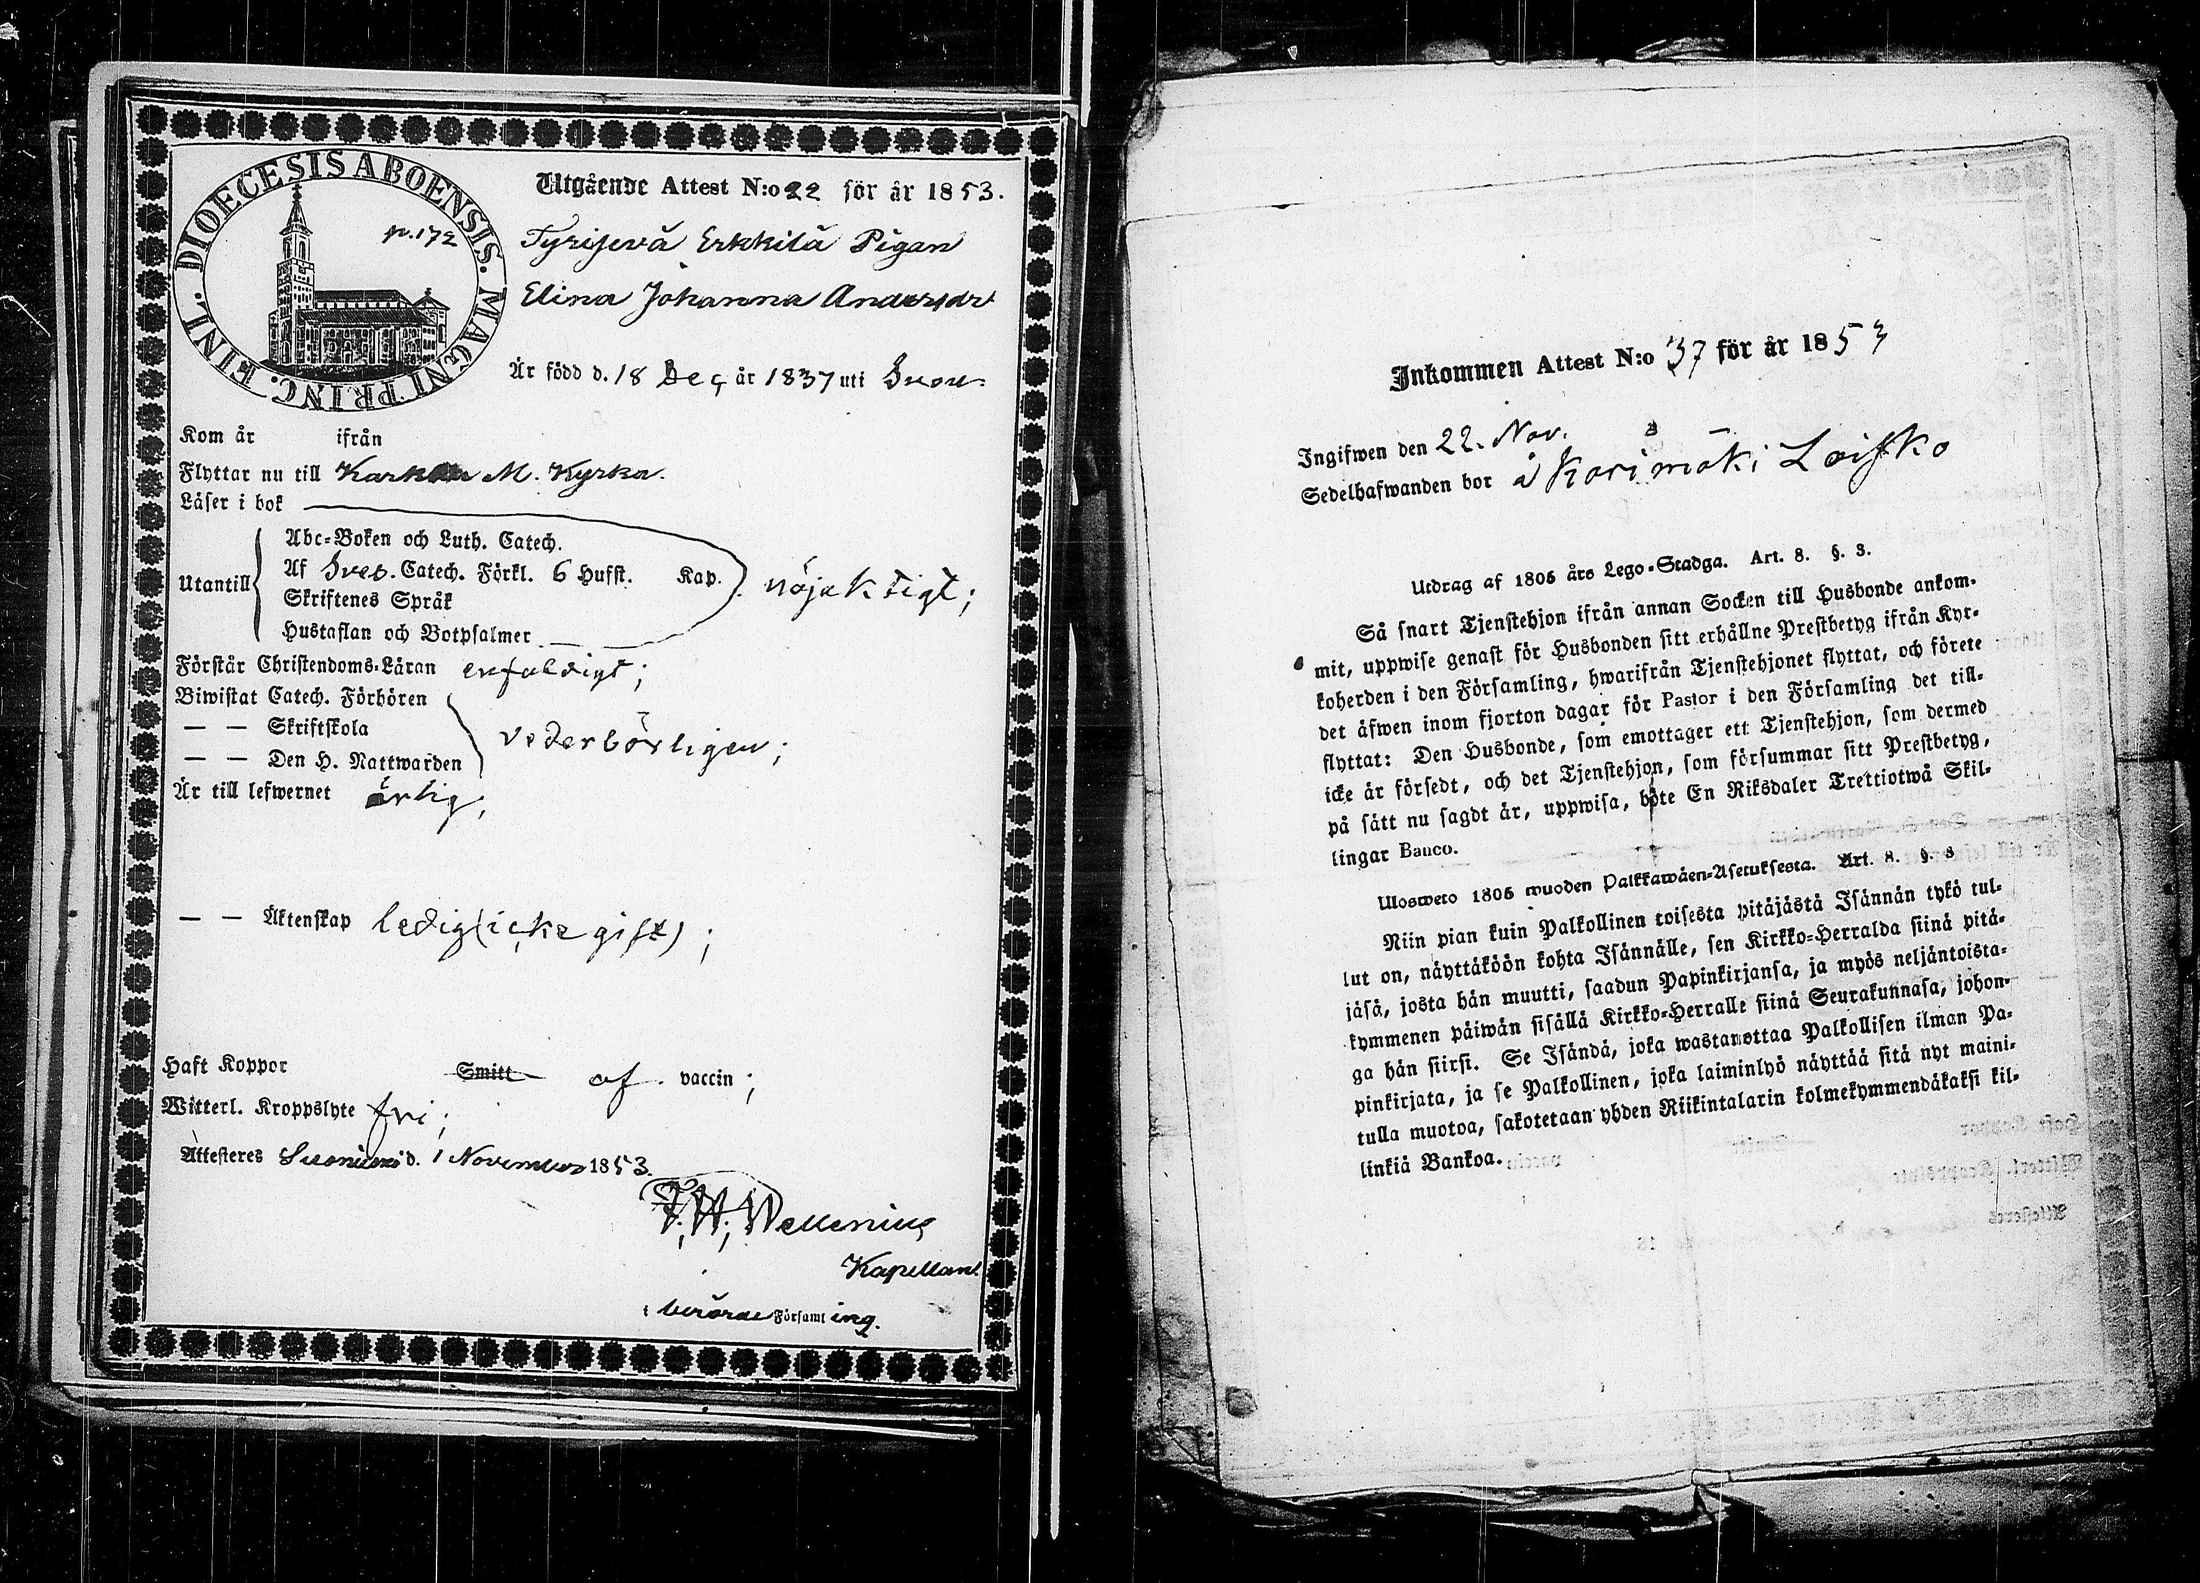 DIOECESIS ABOENSIS. MAGNI PRINC. FINL.
p. 172
Utgående Attest N:o 22 för år 1853.
Tyrisevä Erkkilä Pigan
Elina Johanna Andersdr
Är född d. 18 Dec år 1837 uti
Kom år ifrån
Flyttar nu till Karkku M. Kyrka.
Läser i bok
Utantill
Abc-Boken och Luth. Catech.
Af Sveb. Catech. Förkl. 6 Hufst. Kap.
Skriftenes Språk
Hustaflan och Botpsalmer
nöjaktigt;
Förstår Christendoms-Läran enfaldigt;
Biwistat Catech. Förhören
— — Skriftskola
— — Den H. Nattwarden
vederbörligen;
Är till lefwernet ärlig;
— — Äktenskap ledig (icke gift);
Haft Koppor Smitt af vaccin;
Witterl. Kroppslyte fri;
Attesteres Suoniemi d. 1 November 1853.
Kapellan.
i berörde Församling.
Inkommen Attest N:o 37 för år 1853
Ingifwen den 22. Nov.
Sedelhafwanden bor å Karimäki Loisko
Utdrag af 1805 års Lego-Stadga. Art. 8. §. 3.
Så snart Tjenstehjon ifrån annan Socken till Husbonde ankom-
mit, uppwise genast för Husbonden sitt erhållne Prestbetyg ifrån Kyr-
koherden i den Församling, hwarifrån Tjenstehjonet flyttat, och förete
det äfwen inom fjorton dagar för Pastor i den Församling det till-
flyttat: Den Husbonde, som emottager ett Tjenstehjon, som dermed
icke är försedt, och det Tjenstehjon, som försummar sitt Prestbetyg,
på sätt nu sagdt är, uppwisa, böte En Riksdaler Trettiotwå Skil-
lingar Banco.
Ulosweto 1805 wuoden Palkkawäen-Asetuksesta. Art. 8. §. 3
Niin pian kuin Palkollinen toisesta pitäjästä Isännän tykö tul-
lut on, näyttäköön kohta Isännälle, sen Kirkko-Herralda siinä pitä-
jäsä, josta hän muutti, saadun Papinkirjansa, ja myös neljäntoista-
kymmenen päiwän sisällä Kirkko-Herralle siinä Seurakunnasa, johon-
ga hän siirsi. Se Isändä, joka wastanottaa Palkollisen ilman Pa-
pinkirjata, ja se Palkollinen, joka laiminlyö näyttää sitä nyt maini-
tulla muotoa, sakotetaan yhden Riikintalarin kolmekymmendäkaksi kil-
linkiä Bankoa.